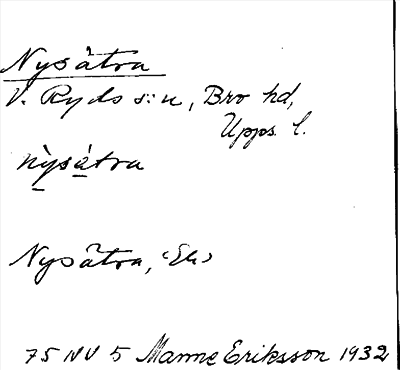 Nysätra
V. Ryds sːn, Bro hd,
Upps. l.
nỳsátra
Nysätra, ‹Ek›
75 NV 5 Manne Eriksson 1932